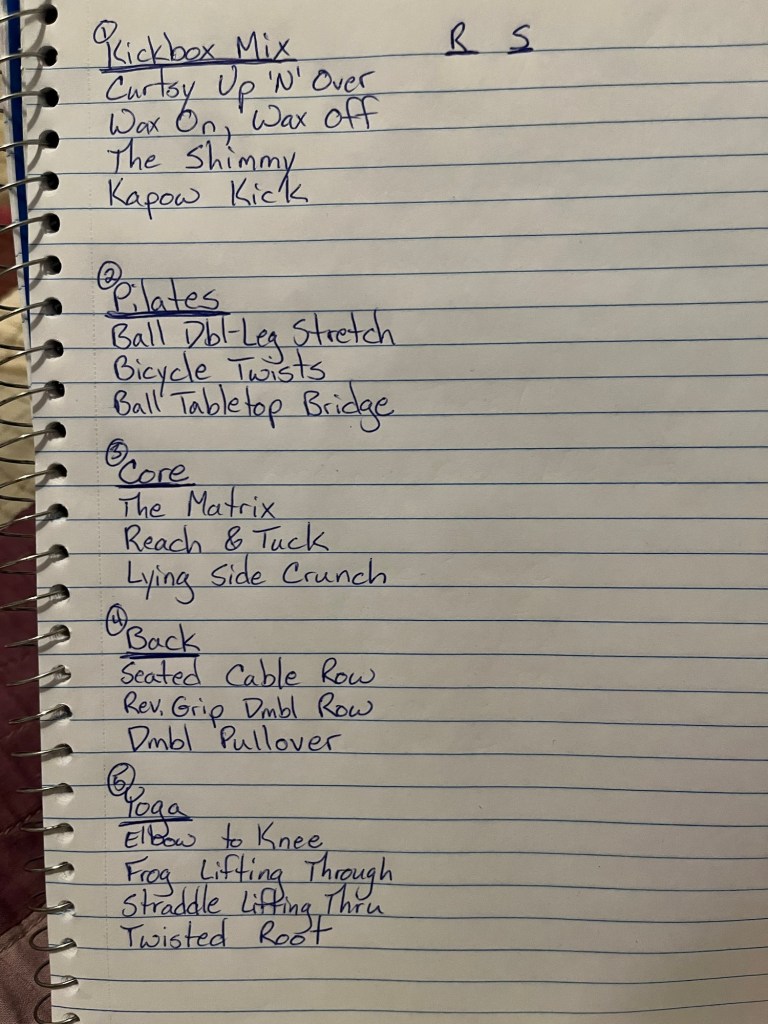 ① R S
Kickbox Mix
Curtsy Up 'N' Over
Wax On, Wax Off
The Shimmy
Kapow Kick
②
Pilates
Ball Dbl-Leg Stretch
Bicycle Twists
Ball Tabletop Bridge
③
Core
The Matrix
Reach & Tuck
Lying Side Crunch
④
Back
Seated Cable Row
Rev. Grip Dmbl Row
Dmbl Pullover
⑤
Yoga
Elbow to Knee
Frog Lifting Through
Straddle Lifting Thru
Twisted Root